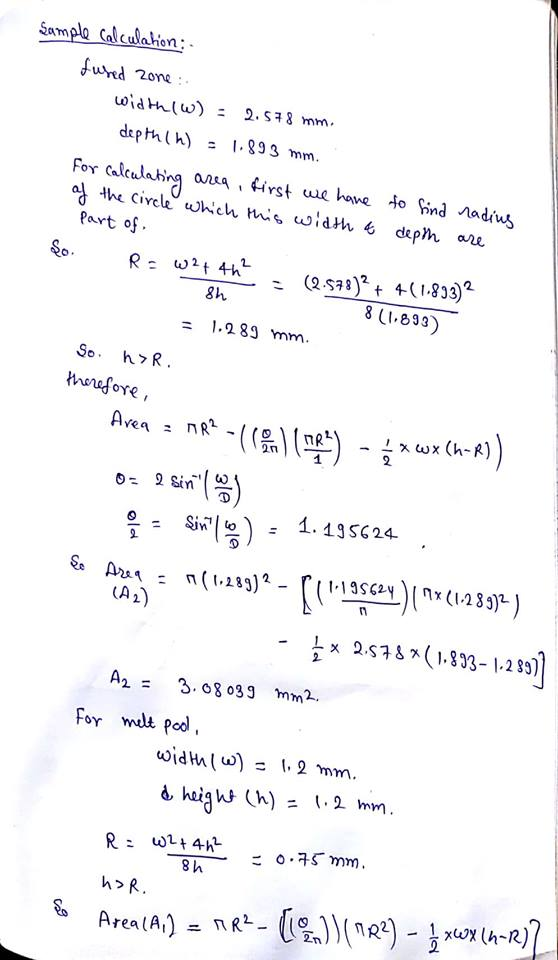 Sample Calculation:-
fused zone:-
width(w) = 2.578 mm.
depth(h) = 1.893 mm.
For calculating area, first we have to find radius
of the circle which this width & depth are
Part of.
So. R = w²+4h² / 8h = (2.578)²+ 4(1.893)² / 8(1.893)
= 1.289 mm.
So. h>R.
therefore,
Area = πR² - ((θ/2π)(πR²/1) - 1/2 × w×(h-R))
θ = 2 Sin⁻¹(w/D)
θ/2 = Sin⁻¹(w/D) = 1.195624.
So Area (A2) = π(1.289)² - [(1.195624/π)(π×(1.289)²)
- 1/2 × 2.578×(1.893-1.289)]
A2 = 3.08039 mm2.
For melt pool,
width(w) = 1.2 mm.
& height (h) = 1.2 mm.
R = w²+4h² / 8h = 0.75 mm.
h>R.
So Area(A1) = πR² - [(θ/2π))(πR²) - 1/2 ×w×(h-R)]